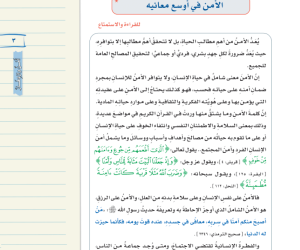 الأمن في أوسع معانيه
للقراءة والاستمتاع
يُعدّ الأمن من أهم مطالب الحياة، بل لا تتحقق أهمّ مطالبها إلا بتوفره
حيث يُعدّ ضرورة لكل جهد بشري، فردي أو جماعي، لتحقيق المصالح العامة
للجميع.
إنّ الأمن معنى شامل في حياة الإنسان، ولا يتوافر الأمن للإنسان بمجرد
ضمان أمنه على حياته فحسب، فهو كذلك يحتاج إلى الأمن على عقيدته
التي يؤمن بها وعلى هُويّته الفكرية والثقافية وعلى موارد حياته المادية.
إنّ كلمة الأمن وما يشتق منها وردتْ في القرآن الكريم في مواضع عديدة،
وذلك بمعنى السلامة والاطمئنان النفسي وانتفاء الخوف على حياة الإنسان
أو على ما تقوم به حياته من مصالح وأهداف وأسباب ووسائل وما يشمل أمن
الإنسان الفرد وأمن المجتمع. يقول تعالى:
فالأمن على نفس الإنسان وعلى سلامة بدنه من العلل، والأمن على الرزق،
هو الأمن الشامل الذي أوجز الإحاطة به وتعريفه حديث رسول الله ﷺ: «من
أصبح منكم آمنًا في سربه، معافى في جسده، عنده قوت يومه، فكأنما حيزت
له الدنيا»
والفطرة الإنسانية تقتضي الاجتماع ومتى وُجد جماعة من الناس،
٣